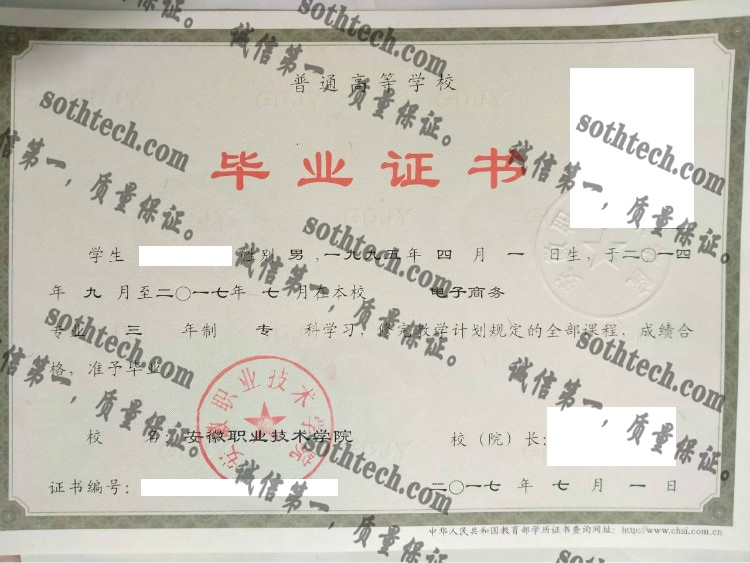 普通高等学校
毕业证书
学生 性别 男 ,一九九五年 四 月 一 日生，于二〇一四
年 九 月至二〇一七年 七 月在本校 电子商务
专业 三 年制 专 科学习，修完教学计划规定的全部课程，成绩合
格，准予毕业
校 名：安徽职业技术学院
校（院）长：
证书编号：
二〇一七 年 七 月 一 日
中华人民共和国教育部学历证书查询网址：http://www.chsi.com.cn
安徽职业技术学院
sothtech.com
诚信第一，质量保证。
sothtech.com
诚信第一，质量保证。
sothtech.com
诚信第一，质量保证。
sothtech.com
诚信第一，质量保证。
sothtech.com
诚信第一，质量保证。
sothtech.com
诚信第一，质量保证。
sothtech.com
诚信第一，质量保证。
sothtech.com
诚信第一，质量保证。